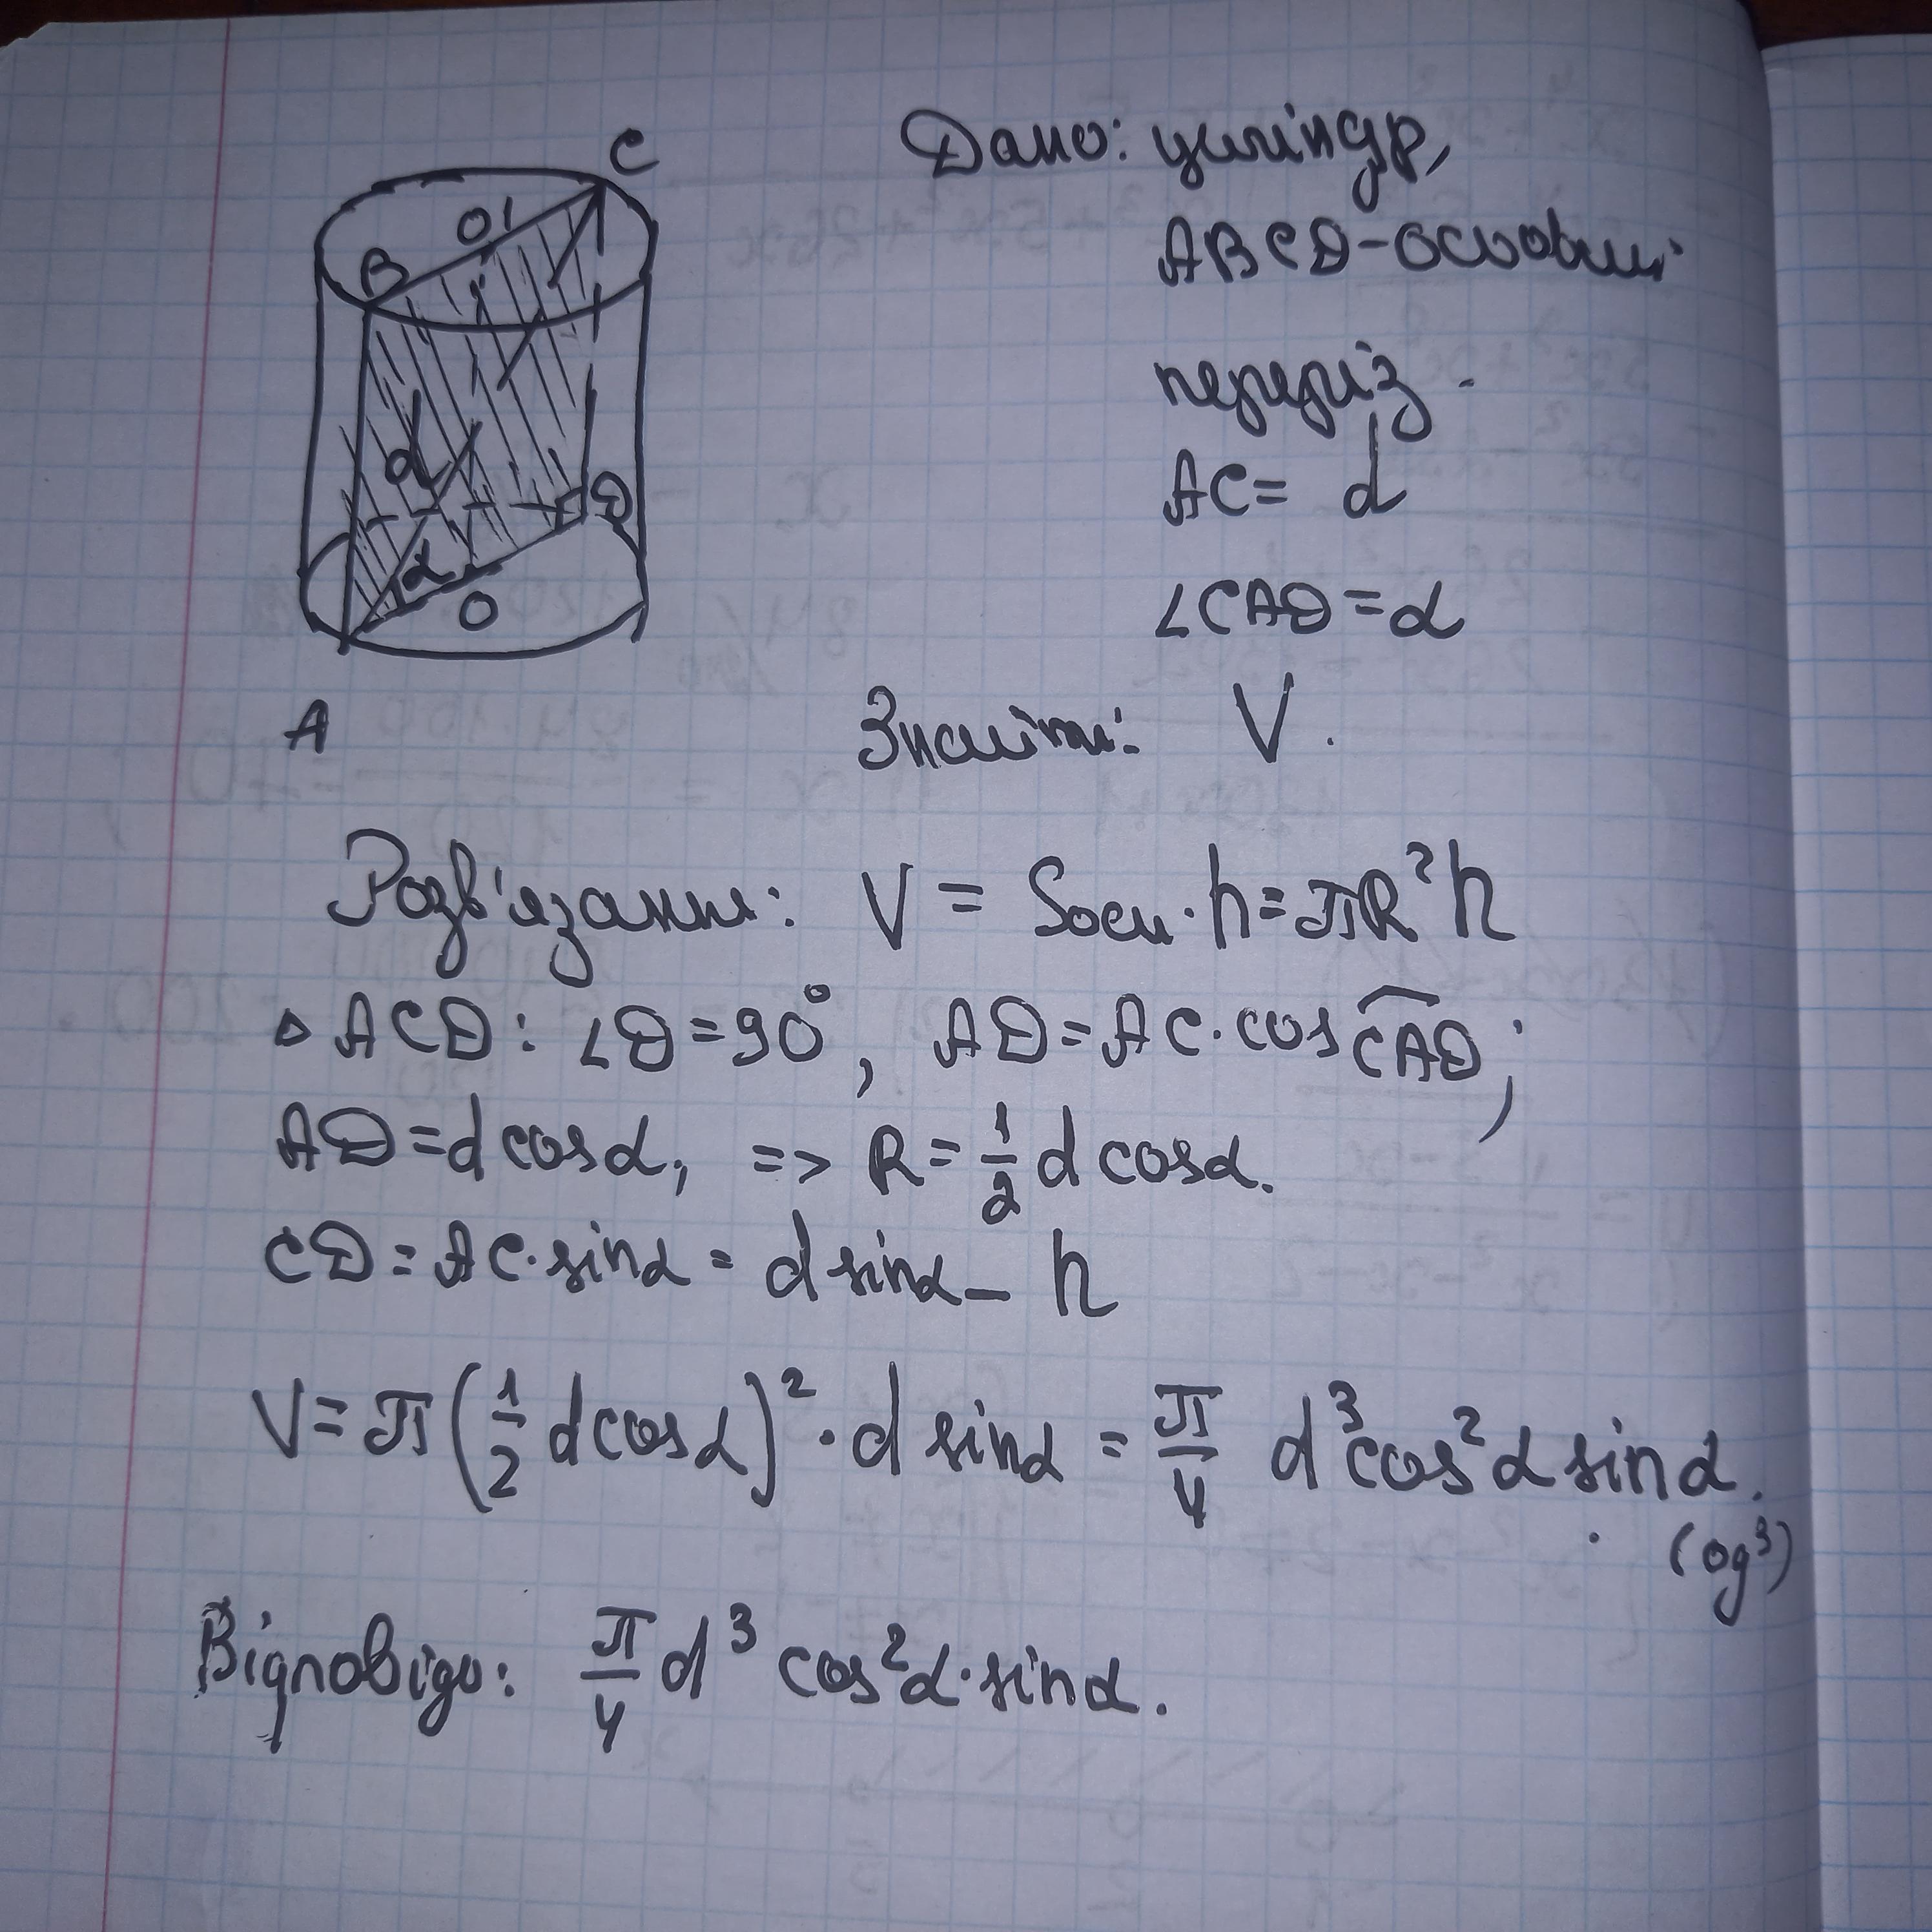 C
O'
B
d
D
α
O
A
Дано: циліндр,
ABCD - осьовий
переріз.
AC = d
∠CAD = α
Знайти: V.
Розв'язання: V = Sосн · h = πR²h
△ACD: ∠D = 90°, AD = AC · cos CAD;
AD = d cosα, => R = 1/2 d cosα.
CD = AC · sinα = d sinα – h
V = π(1/2 d cosα)² · d sinα = π/4 d³cos²α sinα.
(од³)
Відповідь: π/4 d³ cos²α · sinα.